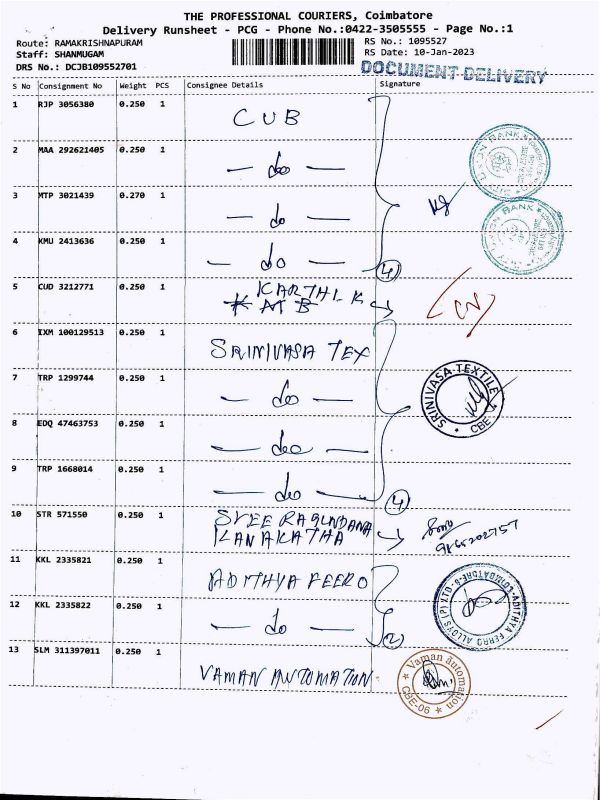 THE PROFESSIONAL COURIERS, Coimbatore
Delivery Runsheet - PCG - Phone No.:0422-3505555 - Page No.:1
Route: RAMAKRISHNAPURAM
Staff: SHANMUGAM
DRS No.: DCJB109552701
RS No.: 1095527
RS Date: 10-Jan-2023
DOCUMENT DELIVERY
S No Consignment No Weight PCS Consignee Details Signature
1 RJP 3056380 0.250 1 CUB
2 MAA 292621405 0.250 1 — do —
3 MTP 3021439 0.270 1 — do —
4 KMU 2413636 0.250 1 — do — 4
5 CUD 3212771 0.250 1 KARTHIK
6 IXM 100129513 0.250 1 SRINIVASA TEX
7 TRP 1299744 0.250 1 — do —
SRINIVASA TEXTILE CBE
8 EDQ 47463753 0.250 1 — do —
9 TRP 1668014 0.250 1 — do — 4
10 STR 571550 0.250 1 SREE
11 KKL 2335821 0.250 1 ADITHYA FEERO
ADITHYA FERRO ALLOYS (P) LTD COIMBATORE-6
12 KKL 2335822 0.250 1 — do — 2
13 SLM 311397011 0.250 1 VAMAN AUTOMATION
Vaman automation CBE-06